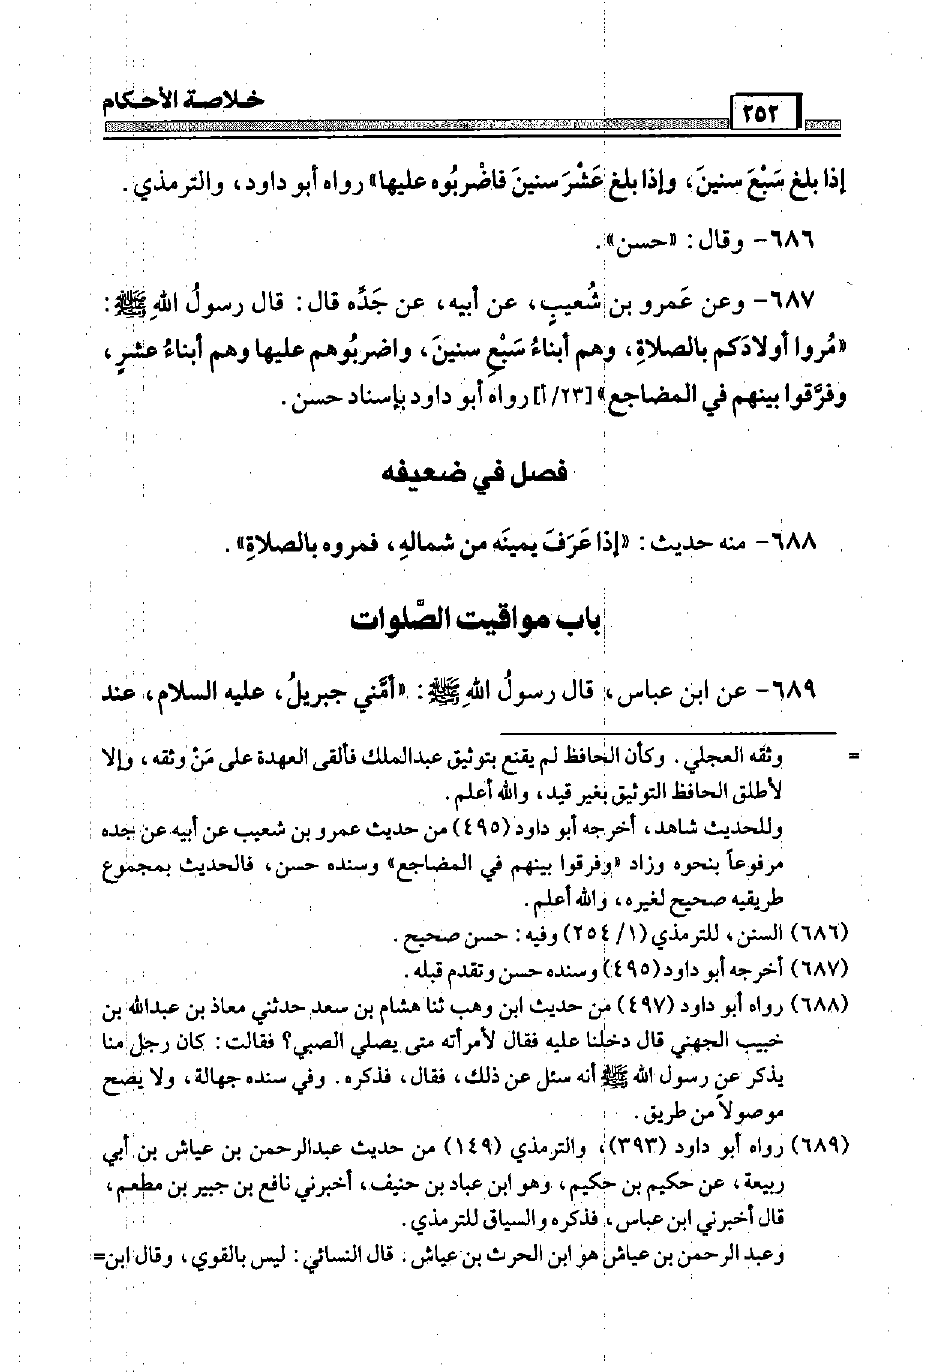 خلاصة الأحكام
٢٥٢
إذا بلغ سَبْعَ سنينَ، وإذا بلغ عَشْرَ سنينَ فاضْربُوه عليها» رواه أبو داود، والترمذي.
٦٨٦- وقال: «حسن».
٦٨٧- وعن عَمرو بن شُعيبٍ، عن أبيه، عن جَدِّه قال: قال رسولُ اللهِ ﷺ:
«مُروا أولادَكم بالصلاةِ، وهم أبناءُ سَبْعِ سنينَ، واضربُوهم عليها وهم أبناءُ عشرٍ،
وفرَّقوا بينهم في المضاجع» [٢٣/أ] رواه أبو داود بإسناد حسن.
فصل في ضعيفه
٦٨٨- منه حديث: «إذا عَرَفَ يمينَه من شمالهِ، فمروه بالصلاةِ».
باب مواقيت الصَّلوات
٦٨٩- عن ابن عباس، قال رسولُ اللهِ ﷺ: «أمَّني جبريلُ، عليه السلام، عند
= وثقه العجلي. وكأن الحافظ لم يقنع بتوثيق عبدالملك فألقى العهدة على مَنْ وثقه، وإلا
لأطلق الحافظ التوثيق بغير قيد، والله أعلم.
وللحديث شاهد، أخرجه أبو داود (٤٩٥) من حديث عمرو بن شعيب عن أبيه عن جده
مرفوعاً بنحوه وزاد «وفرقوا بينهم في المضاجع» وسنده حسن، فالحديث بمجموع
طريقيه صحيح لغيره، والله أعلم.
(٦٨٦) السنن، للترمذي (١/ ٢٥٤) وفيه: حسن صحيح.
(٦٨٧) أخرجه أبو داود (٤٩٥) وسنده حسن وتقدم قبله.
(٦٨٨) رواه أبو داود (٤٩٧) من حديث ابن وهب ثنا هشام بن سعد حدثني معاذ بن عبدالله بن
خبيب الجهني قال دخلنا عليه فقال لأمرأته متى يصلي الصبي؟ فقالت: كان رجل منا
يذكر عن رسول الله ﷺ أنه سئل عن ذلك، فقال، فذكره. وفي سنده جهالة، ولا يصح
موصولاً من طريق.
(٦٨٩) رواه أبو داود (٣٩٣)، والترمذي (١٤٩) من حديث عبدالرحمن بن عياش بن أبي
ربيعة، عن حكيم بن حكيم، وهو ابن عباد بن حنيف، أخبرني نافع بن جبير بن مطعم،
قال أخبرني ابن عباس، فذكره والسياق للترمذي.
وعبد الرحمن بن عياش هو ابن الحرث بن عياش. قال النسائي: ليس بالقوي، وقال ابن=